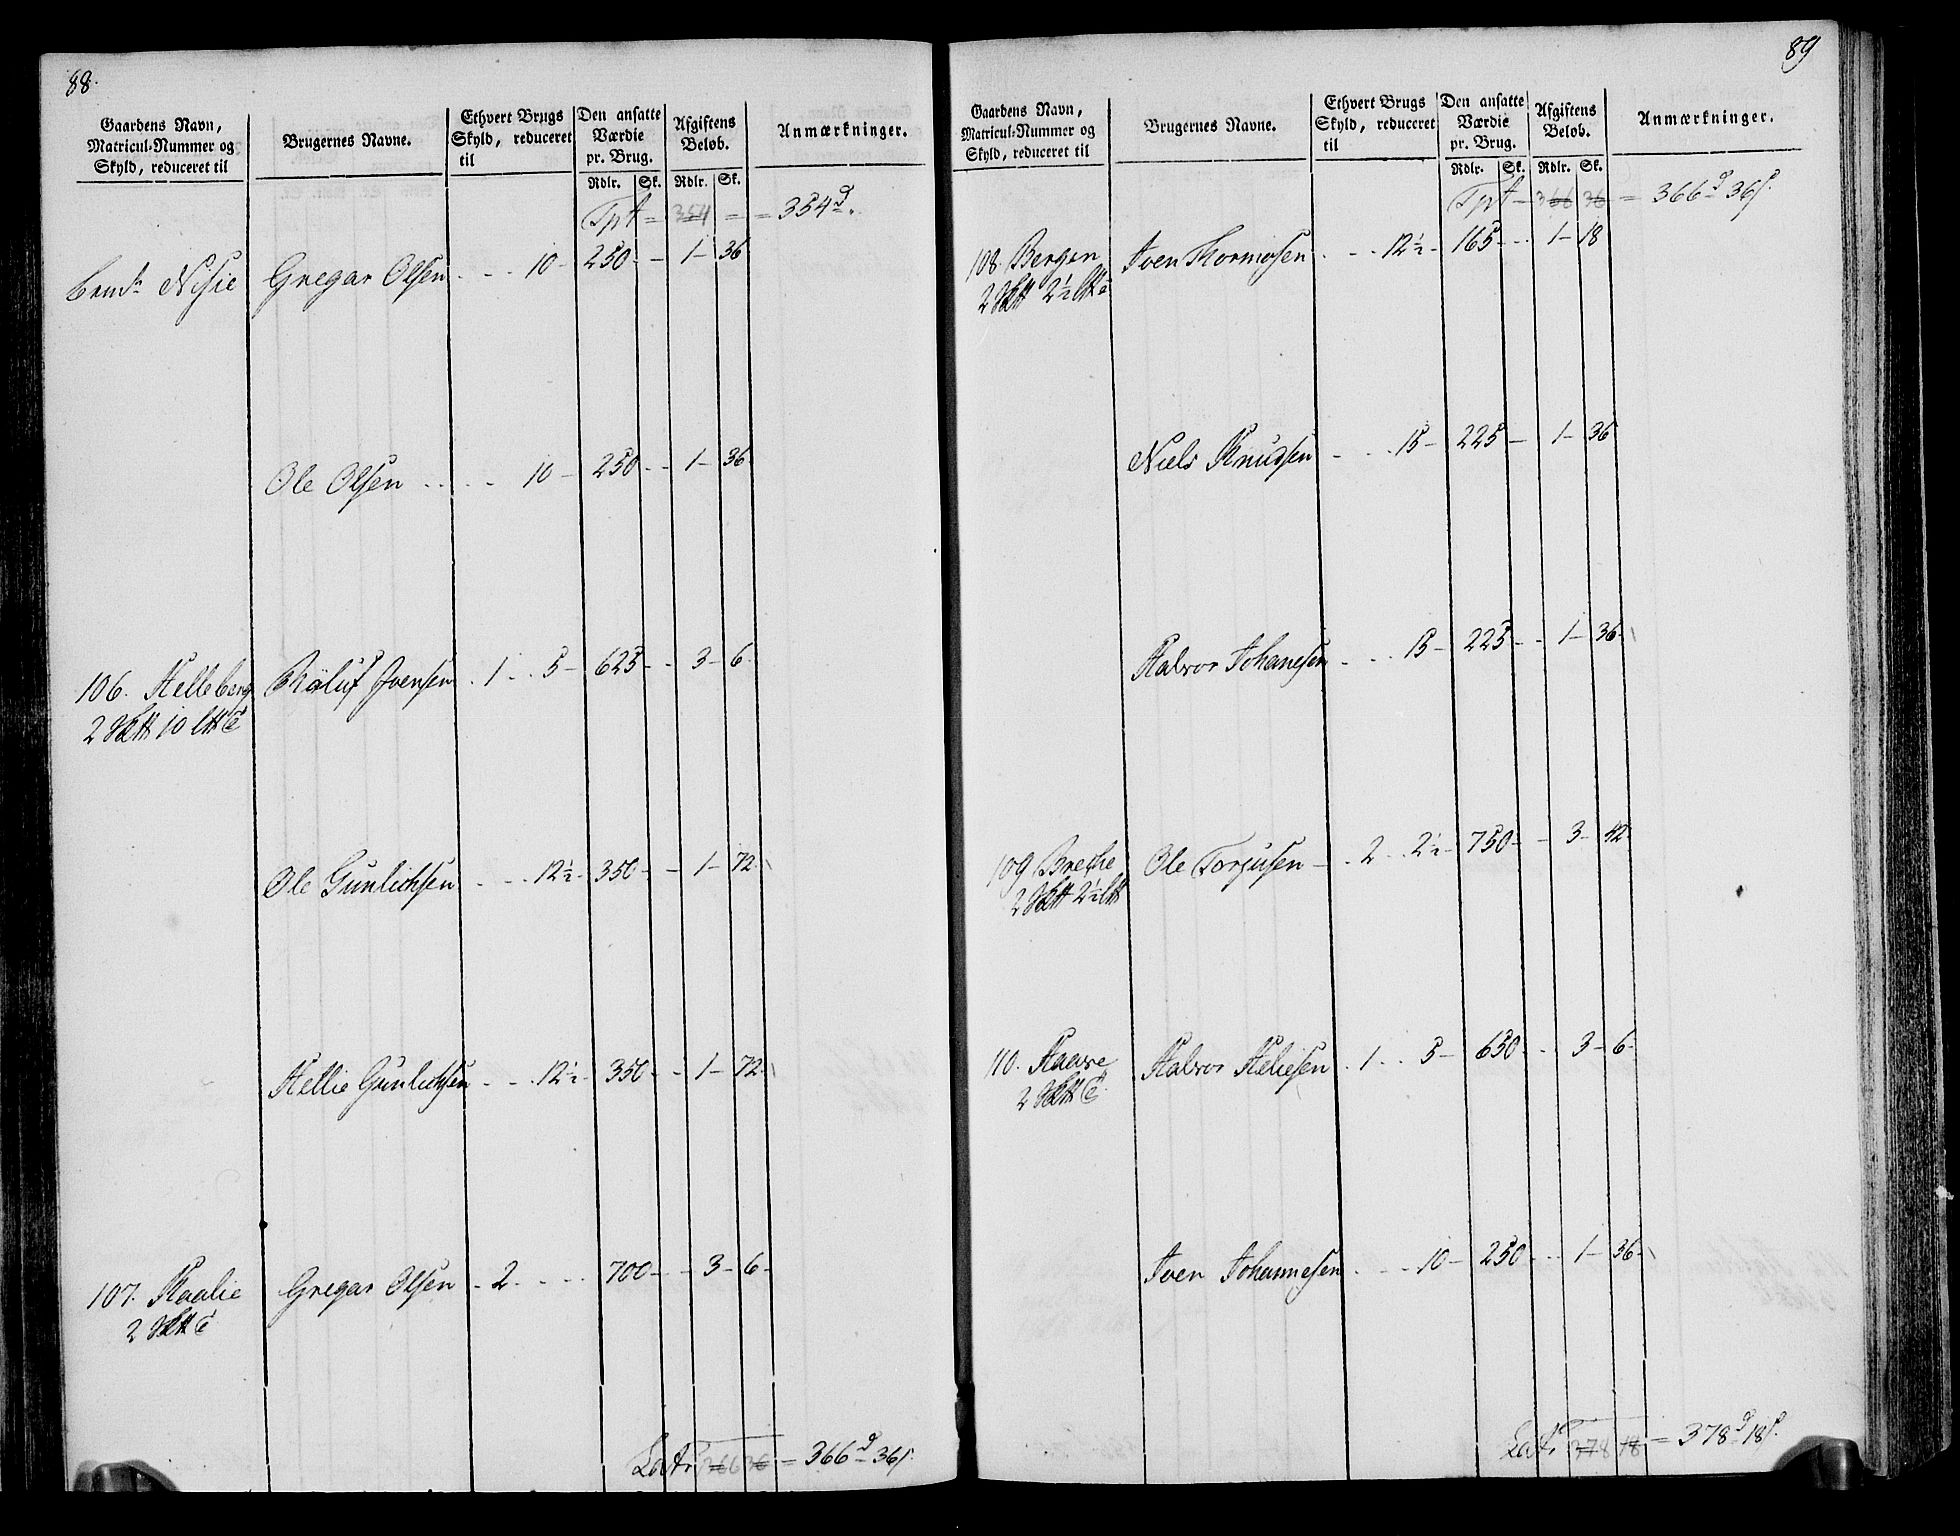 88.
Gaardens Navn, Matricul-Nummer og Skyld, reduceret til
Brugernes Navne.
Ethvert Brugs Skyld, reduceret til
Den ansatte Værdie pr. Brug.
Afgiftens Beløb.
Anmærkninger.
Rdlr. Sk. Rdlr. Sk.
Tpt = 354 = = 354d.
Nisie Gregar Olsen . . . 10 - 250 - - 1 - 36
Ole Olsen . . . . 10 - 250 - - 1 - 36
106. Helleberg Roluf Ivensen . 1 . . 5 - 625 - - 3 - 6
2 10
Ole Gunlichsen . . . 12½ - 350 - - 1 - 72
Hellie Gunlichsen . . . 12½ - 350 - - 1 - 72
107. Kaalie Gregar Olsen - 2 . . . . 700 - - 3 - 6
2
Lat. 366 36 = 366d 36s.
89
Gaardens Navn, Matricul-Nummer og Skyld, reduceret til
Brugernes Navne.
Ethvert Brugs Skyld, reduceret til
Den ansatte Værdie pr. Brug.
Afgiftens Beløb.
Anmærkninger.
Rdlr. Sk. Rdlr. Sk.
Tpt - 366 36 = 366d 36s.
108. Bergan Iven Thormosen . . . 12½ - 165 - - 1 - 18
2 2½
Niels Knudsen - . . . 15 - 225 - 1 - 36
Halvor Johanesen . . . 15 - 225 - - 1 - 36
109 Brekke Ole Torjusen - . 2 . . 2½ - 750 - - 3 - 42
2 2½
110. Haave Halvor Heliesen . 1 . . 5 - 650 - - 3 - 6
2
Iven Johannesen . . . 10 - 250 - - 1 - 36
Lat. 378 18 = 378d 18s.